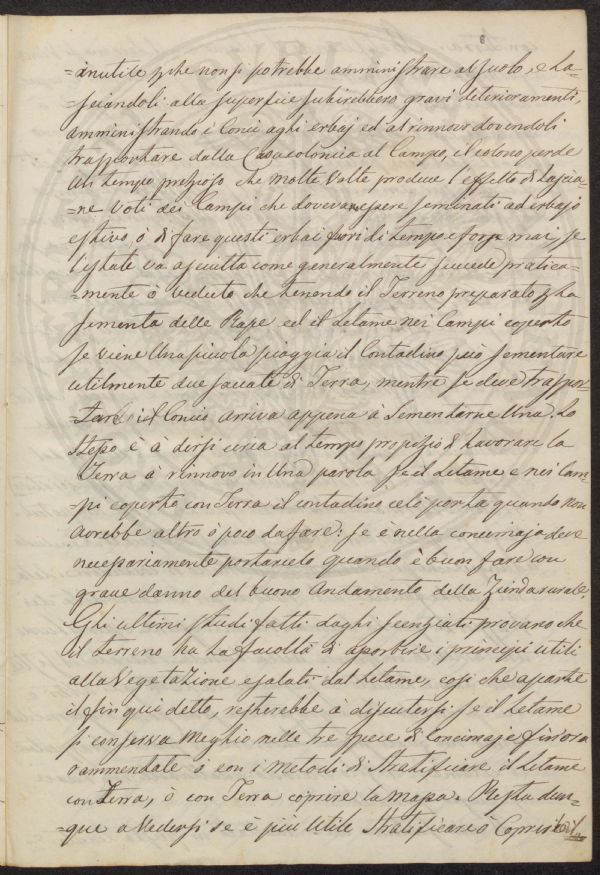 =inutile p che non si potrebbe amministrare al suolo, e La=
=sciandoli alla superficie subirebbero gravi deterioramenti,
amministrando i Conci aghi erbaj ed al rinnovo dovendoli
trasportare dalla Casa colonica al Campo, il colono perde
un tempo prezioso che molte volte produce l'effetto di Lascia=
=re voti dei Campi che dovevano essere seminati ad erbajo
estivo, ó di fare questi erbai fuori di tempo e forse mai, se
l'estate va asciutta come generalmente succede, pratica=
=mente ó veduto che tenendo il Terreno preparato p La
sementa delle Rape ed il Letame nei Campi coperto
se viene Una piccola pioggia il Contadino può sementare
utilmente due saccate di Terra, mentre se deve traspor
=tare il Concio arriva appena à Sementarne Una. Lo
stesso è à dirsi circa al tempo propizio di Lavorare la
Terra à rinnovo in Una parola se il Letame e nei Cam=
=pi coperto con Terra il contadino celo porta quando non
avrebbe altro ó poco da fare: se è nella concimaja deve
necessariamente portarcelo quando è buon fare con
grave danno del buono Andamento della Zienda rurale.
Gli ultimi studi fatti daghi scenziati provano che
il terreno ha La facoltà di asorbire i principi utili
alla Vegetazione esalati dal Letame, cosi che aparte
il fin qui detto, resterebbe a discutersi se il Letame
si conserva Meghio nelle tre spece di Concimaje finora
rammendate ó con i Metodi di Stratificare il Letame
con Terra, ó con Terra coprire la Massa. Resta dun=
=que a Vedersi se è più Utile Stratificare ó Coprir